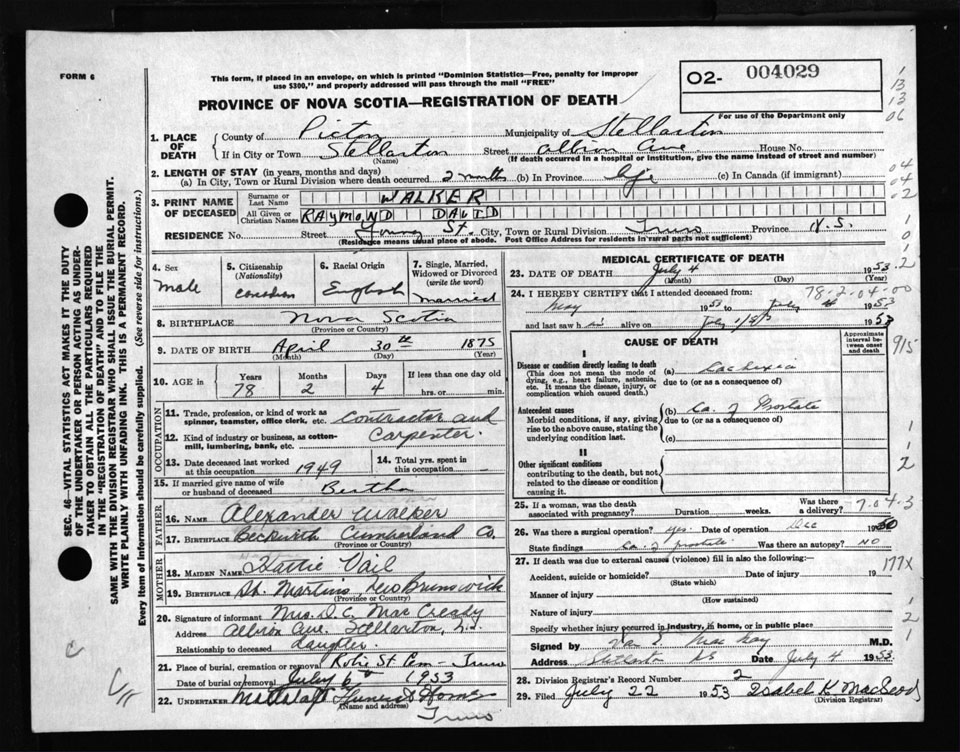 FORM 6
This form, if placed in an envelope, on which is printed "Dominion Statistics—Free, penalty for improper
use $300," and properly addressed will pass through the mail "FREE"
PROVINCE OF NOVA SCOTIA—REGISTRATION OF DEATH
O2- 004029
For use of the Department only
1
13
13
06
1. PLACE OF DEATH
County of Pictou Municipality of Stellarton
If in City or Town Stellarton Street Albion Ave. House No.
(Name) (If death occurred in a hospital or institution, give the name instead of street and number)
2. LENGTH OF STAY (in years, months and days)
(a) In City, Town or Rural Division where death occurred 2 months (b) In Province life (c) In Canada (if immigrant)
04
04
02
3. PRINT NAME OF DECEASED
Surname or Last Name WALKER
All Given or Christian Names RAYMOND DAVID
RESIDENCE No. Street Young St. City, Town or Rural Division Truro Province N.S.
(Residence means usual place of abode. Post Office Address for residents in rural parts not sufficient)
SEC. 46—VITAL STATISTICS ACT MAKES IT THE DUTY
OF THE UNDERTAKER OR PERSON ACTING AS UNDER-
TAKER TO OBTAIN ALL THE PARTICULARS REQUIRED
IN THE "REGISTRATION OF DEATH" AND TO FILE THE
SAME WITH THE DIVISION REGISTRAR WHO SHALL ISSUE THE BURIAL PERMIT.
WRITE PLAINLY WITH UNFADING INK. THIS IS A PERMANENT RECORD.
Every item of information should be carefully supplied. (See reverse side for instructions.)
4. Sex Male
5. Citizenship (Nationality) Canadian
6. Racial Origin English
7. Single, Married, Widowed or Divorced (write the word) married
8. BIRTHPLACE Nova Scotia
(Province or Country)
9. DATE OF BIRTH April 30th 1875
(Month) (Day) (Year)
10. AGE in Years 78 Months 2 Days 4 If less than one day old hrs. or min.
OCCUPATION
11. Trade, profession, or kind of work as spinner, teamster, office clerk, etc. Contractor and
12. Kind of industry or business, as cotton-mill, lumbering, bank, etc. Carpenter.
13. Date deceased last worked at this occupation 1949
14. Total yrs. spent in this occupation
15. If married give name of wife or husband of deceased Bertha
FATHER
16. NAME Alexander Walker
17. BIRTHPLACE Beckwith Cumberland Co.
(Province or Country)
MOTHER
18. MAIDEN NAME Hattie Vail
19. BIRTHPLACE St. Martins, New Brunswick
(Province or Country)
20. Signature of informant Mrs. D. C. MacCready
Address Albion Ave. Stellarton, N.S.
Relationship to deceased daughter
21. Place of burial, cremation or removal Robie St. Cem - Truro
Date of burial or removal July 6th 1953
22. UNDERTAKER Mattatall Funeral Home
(Name and address)
Truro
MEDICAL CERTIFICATE OF DEATH
23. DATE OF DEATH July 4 1953
(Month) (Day) (Year)
24. I HEREBY CERTIFY that I attended deceased from: 78-2-04-00
May 1953 to July 4 1953
and last saw h im alive on July 1st 1953
CAUSE OF DEATH
Approximate interval between onset and death
I
Disease or condition directly leading to death (a) Cachexia
(This does not mean the mode of dying, e.g., heart failure, asthenia, etc. It means the disease, injury, or complication which caused death.)
due to (or as a consequence of)
Antecedent causes (b) Ca. of Prostate
Morbid conditions, if any, giving rise to the above cause, stating the underlying condition last.
due to (or as a consequence of)
(c)
II
Other significant conditions contributing to the death, but not related to the disease or condition causing it.
915
1
2
25. If a woman, was the death associated with pregnancy? Duration weeks. Was there a delivery? 7-04-3
26. Was there a surgical operation? yes. Date of operation Dec 19
State findings Ca. of prostate Was there an autopsy? NO
27. If death was due to external causes (violence) fill in also the following:
Accident, suicide or homicide? Date of injury 19 177X
(State which)
Manner of injury
(How sustained)
Nature of injury
Specify whether injury occurred in industry, in home, or in public place
Signed by MacKay M.D.
Address Stellarton NS Date July 4 1953
28. Division Registrar's Record Number 2
29. Filed July 22 1953 Isabel K. MacLeod
(Division Registrar)